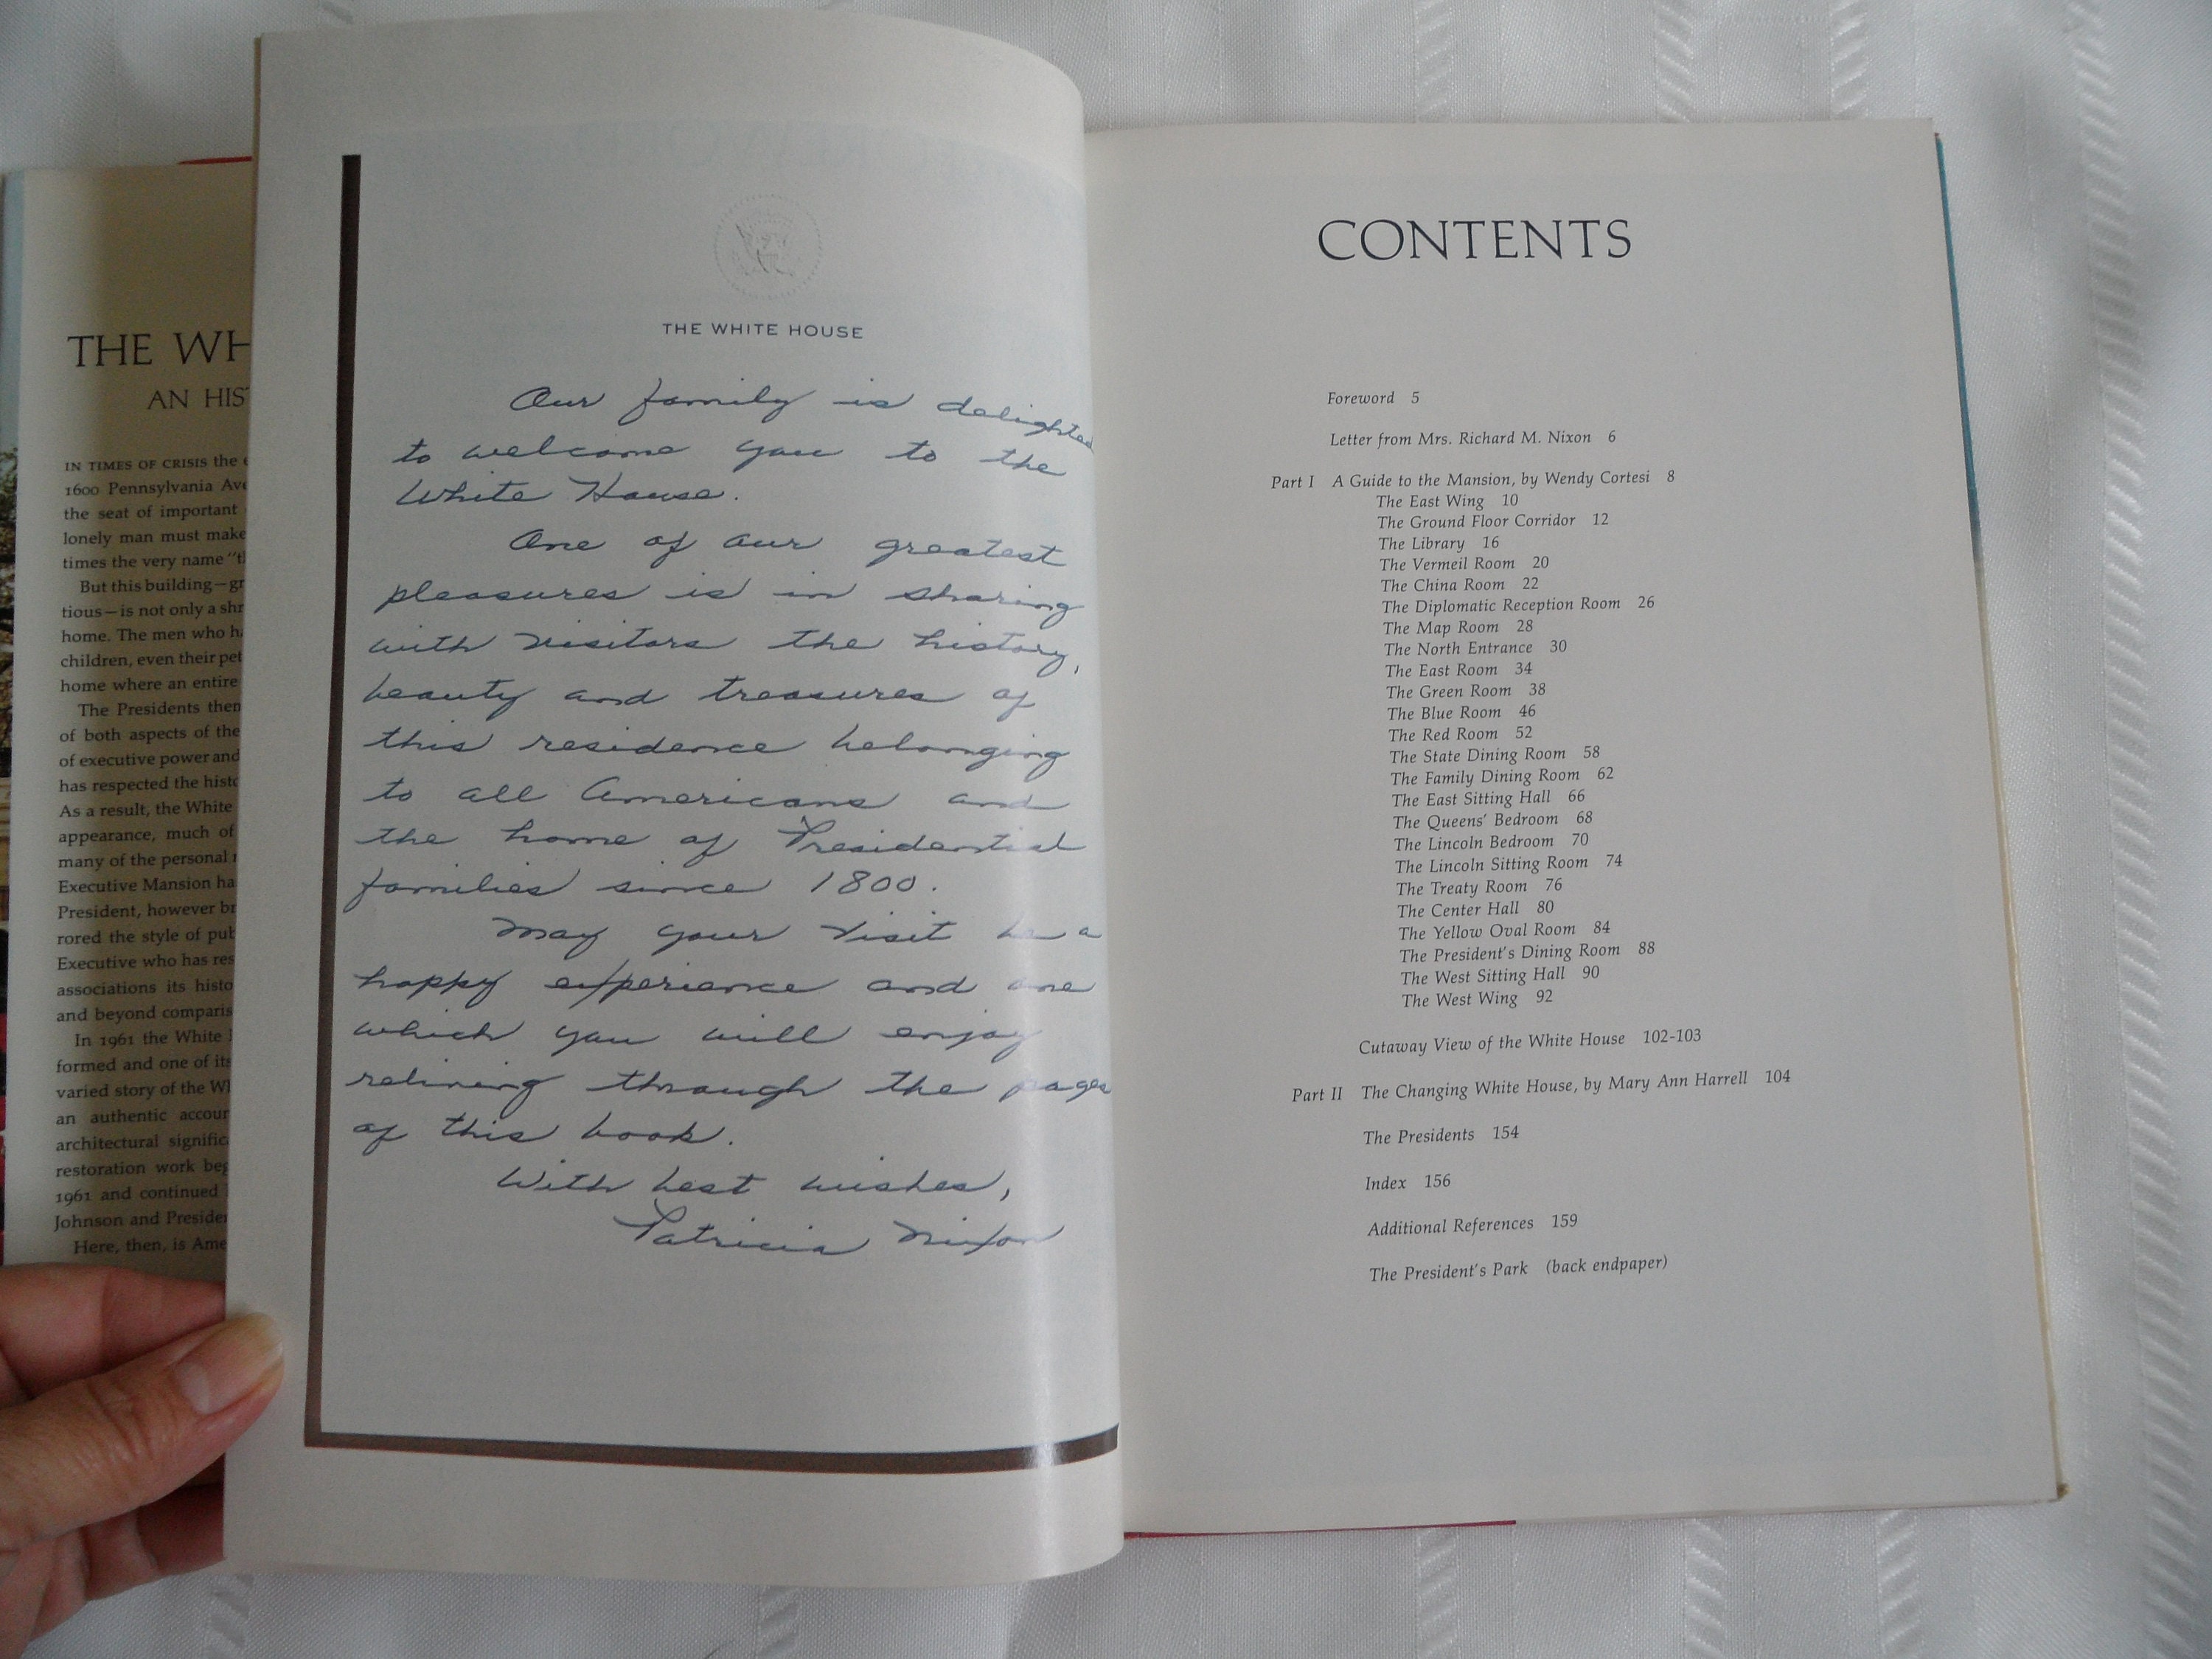 THE WH
AN HIS
IN TIMES OF CRISIS the
1600 Pennsylvania Ave
the seat of important
lonely man must make
times the very name "t
But this building—gr
tious—is not only a shr
home. The men who h
children, even their pet
home where an entire
The Presidents then
of both aspects of the
of executive power and
has respected the histo
As a result, the White
appearance, much of
many of the personal
Executive Mansion ha
President, however br
rored the style of pub
Executive who has res
associations its histo
and beyond comparis
In 1961 the White
formed and one of its
varied story of the Wh
an authentic accour
architectural signific
restoration work beg
1961 and continued
Johnson and Presider
Here, then, is Ame
THE WHITE HOUSE
Our family is delighted
to welcome you to the
White House.
One of our greatest
pleasures is in sharing
with visitors the history,
beauty and treasures of
this residence belonging
to all Americans and
the home of Presidential
families since 1800.
May your visit be a
happy experience and one
which you will enjoy
reliving through the pages
of this book.
With best wishes,
Patricia Nixon
CONTENTS
Foreword 5
Letter from Mrs. Richard M. Nixon 6
Part I A Guide to the Mansion, by Wendy Cortesi 8
The East Wing 10
The Ground Floor Corridor 12
The Library 16
The Vermeil Room 20
The China Room 22
The Diplomatic Reception Room 26
The Map Room 28
The North Entrance 30
The East Room 34
The Green Room 38
The Blue Room 46
The Red Room 52
The State Dining Room 58
The Family Dining Room 62
The East Sitting Hall 66
The Queens' Bedroom 68
The Lincoln Bedroom 70
The Lincoln Sitting Room 74
The Treaty Room 76
The Center Hall 80
The Yellow Oval Room 84
The President's Dining Room 88
The West Sitting Hall 90
The West Wing 92
Cutaway View of the White House 102-103
Part II The Changing White House, by Mary Ann Harrell 104
The Presidents 154
Index 156
Additional References 159
The President's Park (back endpaper)